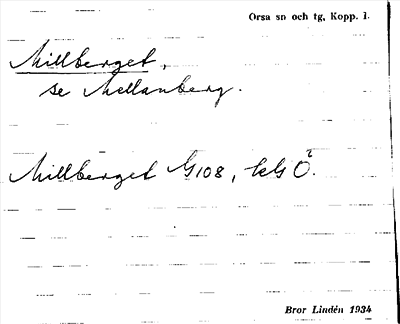 Orsa sn och tg, Kopp. l.
Millberget,
se Mellanberg.
Millberget G108, kls Ö?
Bror Lindén 1934